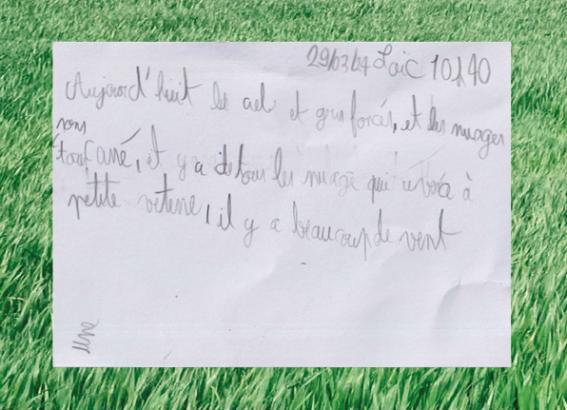 29/03/24 Loïc 10h40
Aujourd'huit le ciel et gris foncés, et les nuages
sons
touf ané, il y a de tous les nuage qui à
petite vetene, il y a beaucoup de vent